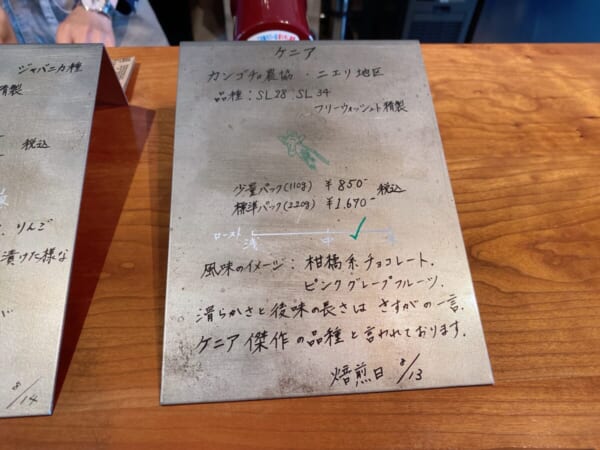 ジャバニカ種
精製
税込
りんご
漬けた様な
8/14
ケニア
カンゴチョ農協・ニエリ地区
品種：SL28 SL34
フリーウォッシュト精製
少量パック(110g) ¥850- 税込
標準パック(220g) ¥1.670-
ロースト 浅 中
風味のイメージ：柑橘系チョコレート.
ピンクグレープフルーツ.
滑らかさと後味の長さはさすがの一言.
ケニア傑作の品種と言われております.
焙煎日 8/13